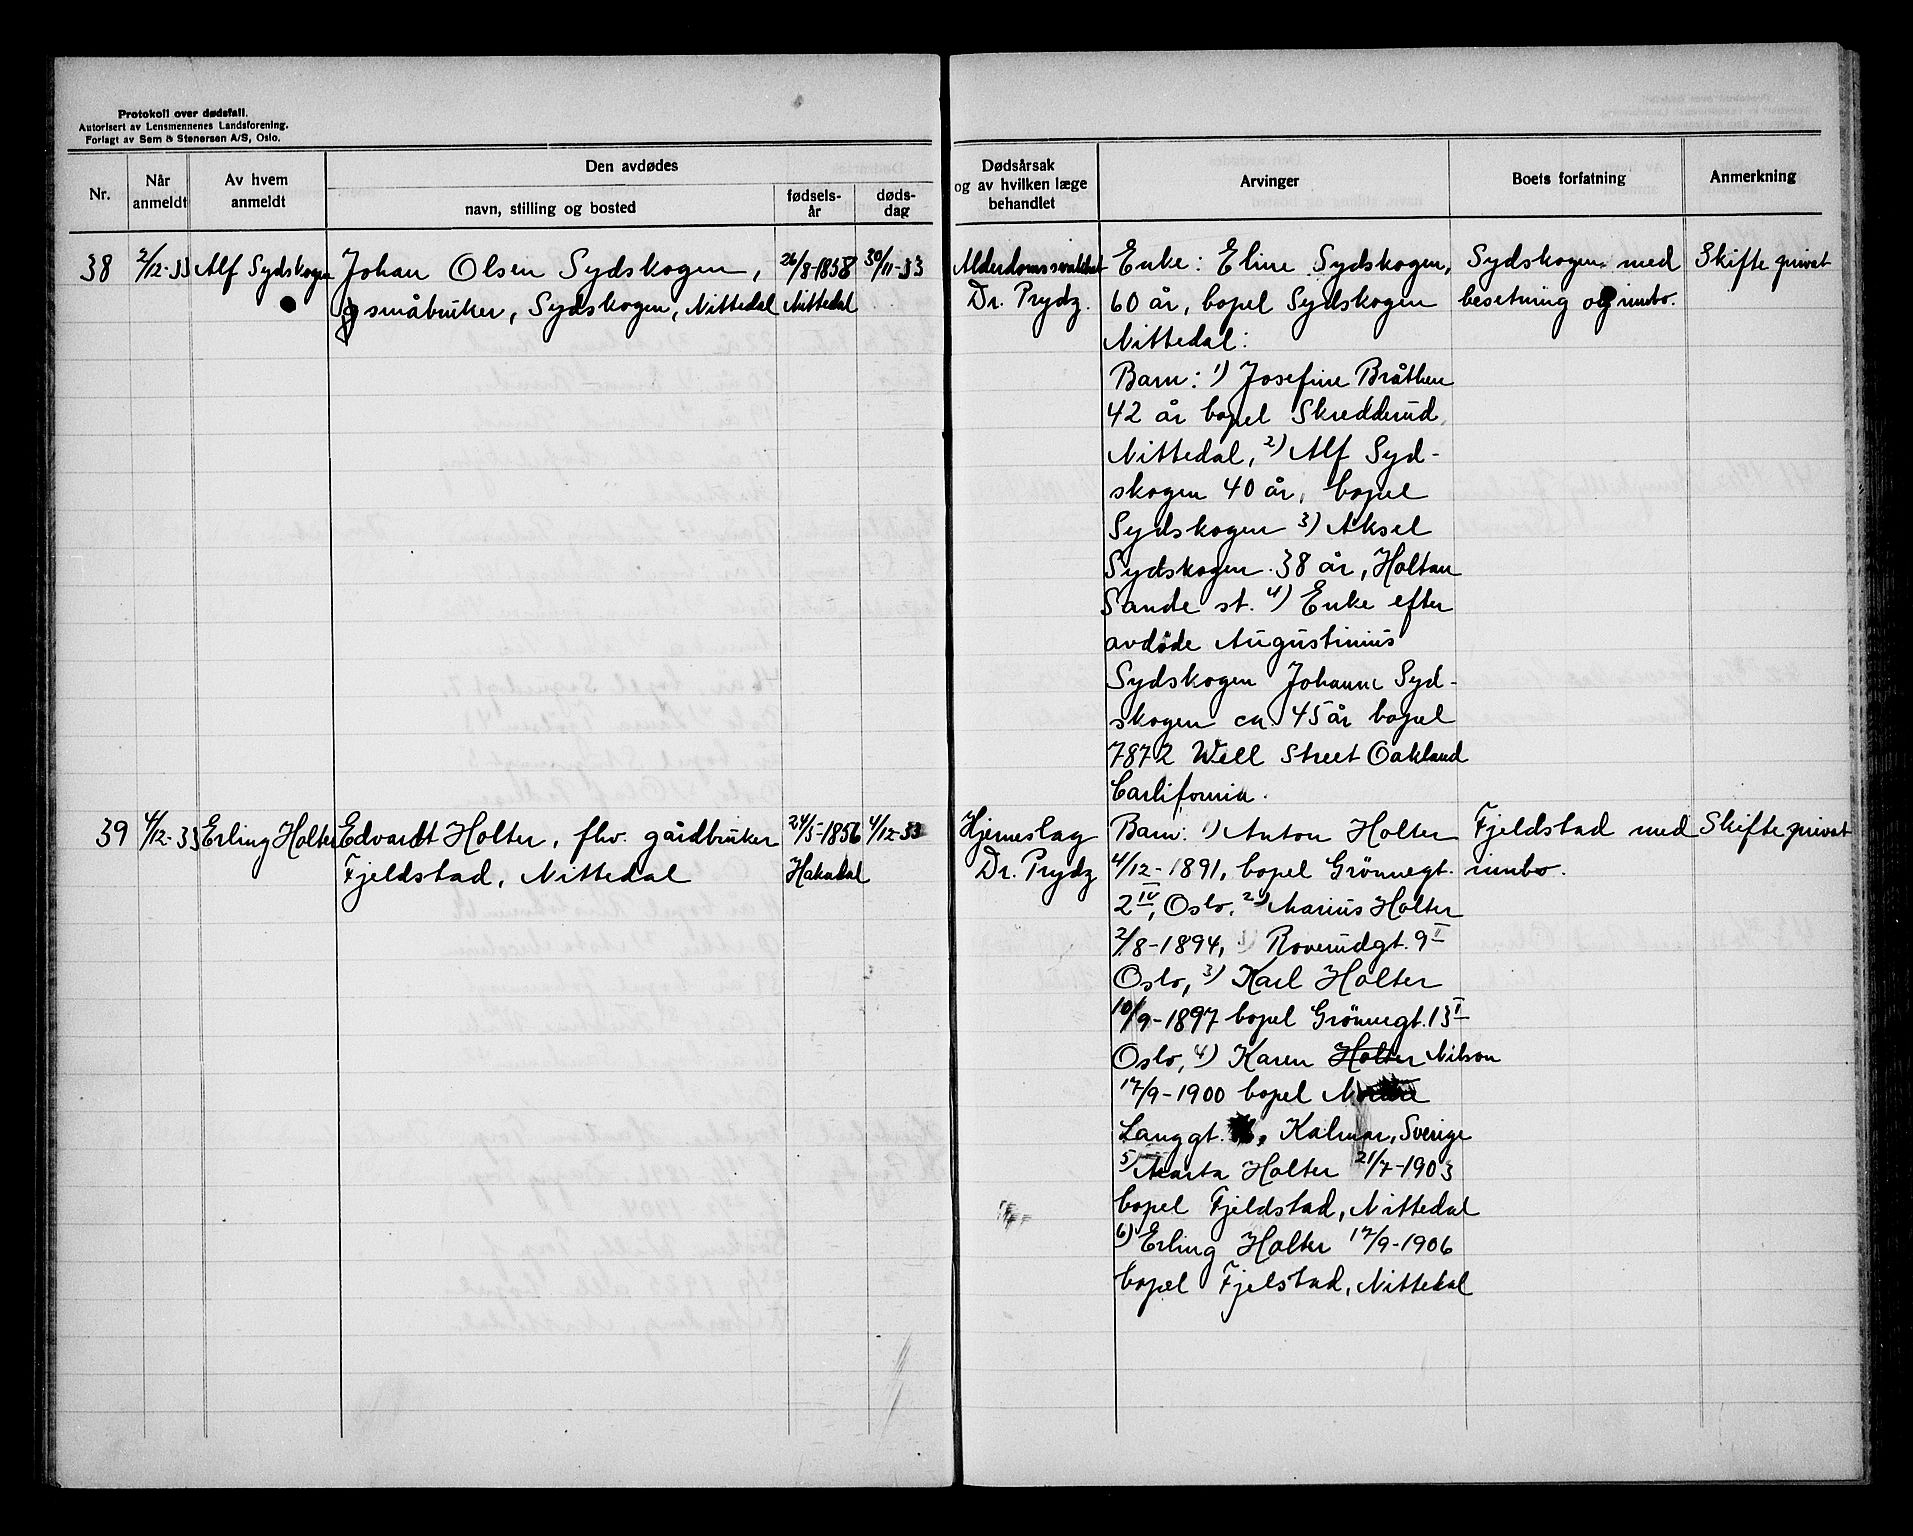 Protokoll over dødsfall.
Autorisert av Lensmennenes Landsforening.
Forlagt av Sem & Stenersen A/S, Oslo.
Nr.
Når anmeldt
Av hvem anmeldt
Den avdødes
navn, stilling og bosted
fødsels-
år
døds-
dag
Dødsårsak
og av hvilken læge
behandlet
Arvinger
Boets forfatning
Anmerkning
38
2/12-33
Alf Sydskogen
Johan Olsen Sydskogen,
småbruker, Sydskogen, Nittedal
26/8-1858
Nittedal
30/11-33
Alderdomssvakhet
Dr. Prydz.
Enke: Eline Sydskogen,
60 år, bopel Sydskogen
Nittedal:
Barn: 1) Josefine Bråthen
42 år bopel Skredderud,
Nittedal, 2) Alf Syd-
skogen 40 år, bopel
Sydskogen 3) Aksel
Sydskogen. 38 år, Holtan
Sande st. 4) Enke efter
avdøde Augustinius
Sydskogen Johanne Syd-
skogen ca. 45 år bopel
7872 Well Street Oakland
Carlifornia.
Sydskogen med
besetning og innbo.
Skifte privat
39
4/12-33
Erling Holter
Edvardt Holter, fhv. gårdbruker
Fjeldstad, Nittedal
24/5-1856
Hakadal
4/12-33
Hjerneslag
Dr. Prydz
Barn: 1) Anton Holter
4/12-1891, bopel Grönnegt.
2 IV, Oslo, 2) Marius Holter
2/8-1894, Roverudgt. 9 II
Oslo, 3) Karl Holter
10/9-1897 bopel Grönnegt. 13 I
Oslo, 4) Karen Holter Nilson
17/9-1900 bopel
Langgt. Kalmar, Sverige
5) Marta Holter 21/7-1903
bopel Fjeldstad, Nittedal
6) Erling Holter 17/9-1906
bopel Fjelstad, Nittedal
Fjeldstad med
innbo.
Skifte privat